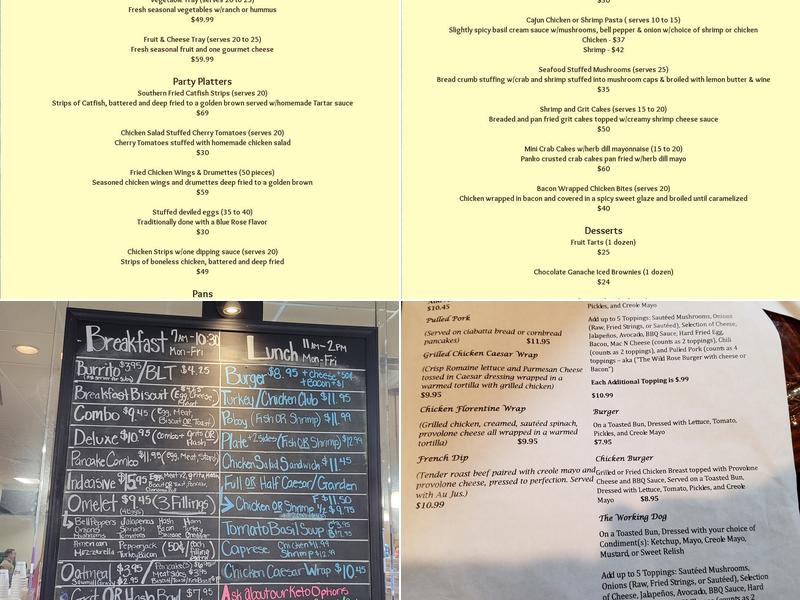 Vegetable Tray (serves 20 to 25)
Fresh seasonal vegetables w/ranch or hummus
$49.99
Fruit & Cheese Tray (serves 20 to 25)
Fresh seasonal fruit and one gourmet cheese
$59.99
Party Platters
Southern Fried Catfish Strips (serves 20)
Strips of Catfish, battered and deep fried to a golden brown served w/homemade Tartar sauce
$69
Chicken Salad Stuffed Cherry Tomatoes (serves 20)
Cherry Tomatoes stuffed with homemade chicken salad
$30
Fried Chicken Wings & Drumettes (50 pieces)
Seasoned chicken wings and drumettes deep fried to a golden brown
$59
Stuffed deviled eggs (35 to 40)
Traditionally done with a Blue Rose Flavor
$30
Chicken Strips w/one dipping sauce (serves 20)
Strips of boneless chicken, battered and deep fried
$49
Pans
Cajun Chicken or Shrimp Pasta ( serves 10 to 15)
Slightly spicy basil cream sauce w/mushrooms, bell pepper & onion w/choice of shrimp or chicken
Chicken - $37
Shrimp - $42
Seafood Stuffed Mushrooms (serves 25)
Bread crumb stuffing w/crab and shrimp stuffed into mushroom caps & broiled with lemon butter & wine
$35
Shrimp and Grit Cakes (serves 15 to 20)
Breaded and pan fried grit cakes topped w/creamy shrimp cheese sauce
$50
Mini Crab Cakes w/herb dill mayonnaise (15 to 20)
Panko crusted crab cakes pan fried w/herb dill mayo
$60
Bacon Wrapped Chicken Bites (serves 20)
Chicken wrapped in bacon and covered in a spicy sweet glaze and broiled until caramelized
$40
Desserts
Fruit Tarts (1 dozen)
$25
Chocolate Ganache Iced Brownies (1 dozen)
$24
Breakfast 7AM-10:30
Mon-Fri
Burrito $3.95/BLT $4.25
Breakfast Biscuit (Egg, Cheese,
Combo $9.45 (Egg, Meat,
Biscuit OR Toast)
Deluxe $10.95 (combo+ Grits OR
Hash
Pancake Combo $11.95 (egg, meat,
$15.95
Omelet $9.45 (3 Fillings)
Bell Peppers Jalapenos Hash Ham
Onions Spinach Bacon Turkey
Mushrooms Tomatoes Sausage
American Pepperjack (50¢
Mozzarella Turkey Bacon
Oatmeal $3.95
Grit OR Hash Bowl $7.95
Lunch 11AM-2PM
Mon-Fri
Burger $8.95 +cheese
+Bacon +$1
Turkey/Chicken Club $11.95
Poboy (Fish OR Shrimp) $11.99
Plate +2 sides (Fish OR Shrimp) $12.99
Chicken Salad Sandwich $11.45
Full OR Half Caesar/Garden
Chicken OR Shrimp F $11.50
½ $9.75
Tomato Basil Soup
Caprese Chicken $11.99
Shrimp $12.99
Chicken Caesar Wrap $10.45
Ask about our Keto Options
$10.45
Pulled Pork
(Served on ciabatta bread or cornbread
pancakes) $11.95
Grilled Chicken Caesar Wrap
(Crisp Romaine lettuce and Parmesan Cheese
tossed in Caesar dressing wrapped in a
warmed tortilla with grilled chicken)
$9.95
Chicken Florentine Wrap
(Grilled chicken, creamed, sautéed spinach,
provolone cheese all wrapped in a warmed
tortilla) $9.95
French Dip
(Tender roast beef paired with creole mayo and
provolone cheese, pressed to perfection. Served
with Au Jus.)
$10.99
Pickles, and Creole Mayo
Add up to 5 Toppings: Sautéed Mushrooms, Onions
(Raw, Fried Strings, or Sautéed), Selection of Cheese,
Jalapeños, Avocado, BBQ Sauce, Hard Fried Egg,
Bacon, Mac N Cheese (counts as 2 toppings), Chili
(counts as 2 toppings), and Pulled Pork (counts as 4
toppings – aka ("The Wild Rose Burger with cheese or
Bacon")
Each Additional Topping is $.99
$10.99
Burger
On a Toasted Bun, Dressed with Lettuce, Tomato,
Pickles, and Creole Mayo
$7.95
Chicken Burger
Grilled or Fried Chicken Breast topped with Provolone
Cheese and BBQ Sauce, Served on a Toasted Bun,
Dressed with Lettuce, Tomato, Pickles, and Creole
Mayo $8.95
The Working Dog
On a Toasted Bun, Dressed with your choice of
Condiment(s): Ketchup, Mayo, Creole Mayo,
Mustard, or Sweet Relish
Add up to 5 Toppings: Sautéed Mushrooms,
Onions (Raw, Fried Strings, or Sautéed), Selection
of Cheese, Jalapeños, Avocado, BBQ Sauce, Hard